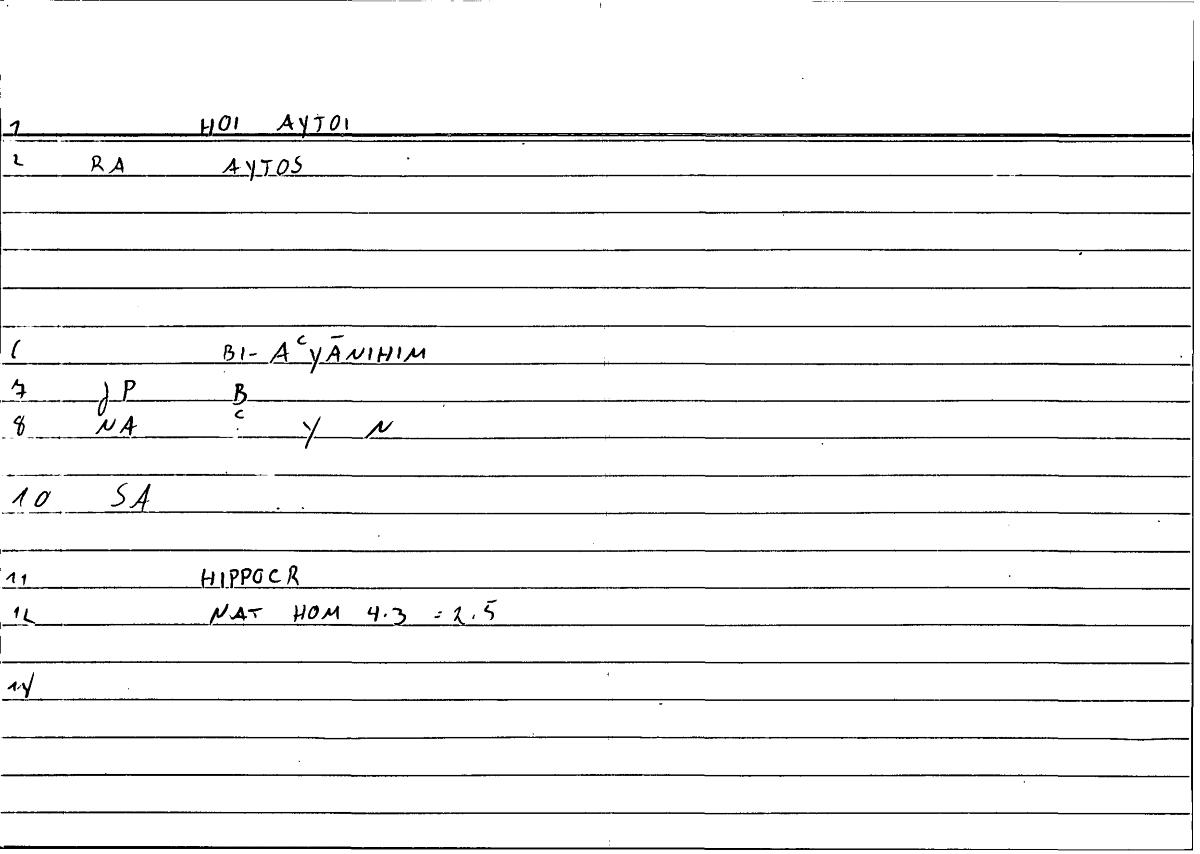 1 HOI AYTOI
2 RA AYTOS
6 BI- AᶜYĀNIHIM
7 JP B
8 NA ᶜ Y N
10 SA
11 HIPPOCR
12 NAT HOM 4.3 = 2.5
14